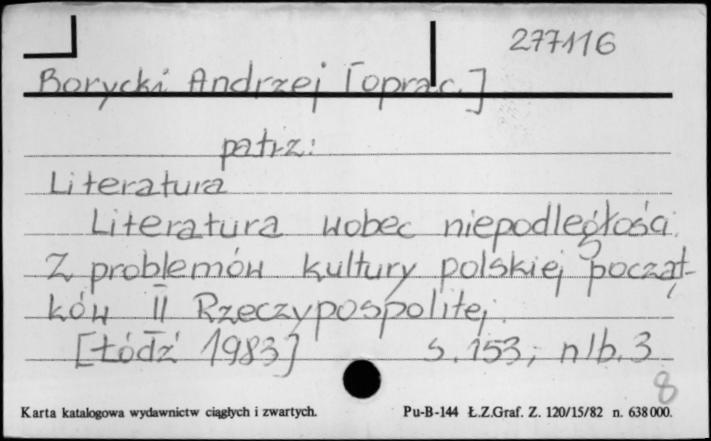 277116
Borycki Andrzej [oprac.]
patrz:
Literatura
Literatura wobec niepodległości.
Z problemów kultury polskiej począt-
ków II Rzeczypospolitej.
[Łódź 1983] s. 153, nlb. 3
8
Karta katalogowa wydawnictw ciągłych i zwartych. Pu-B-144 Ł.Z.Graf. Z. 120/15/82 n. 638000.